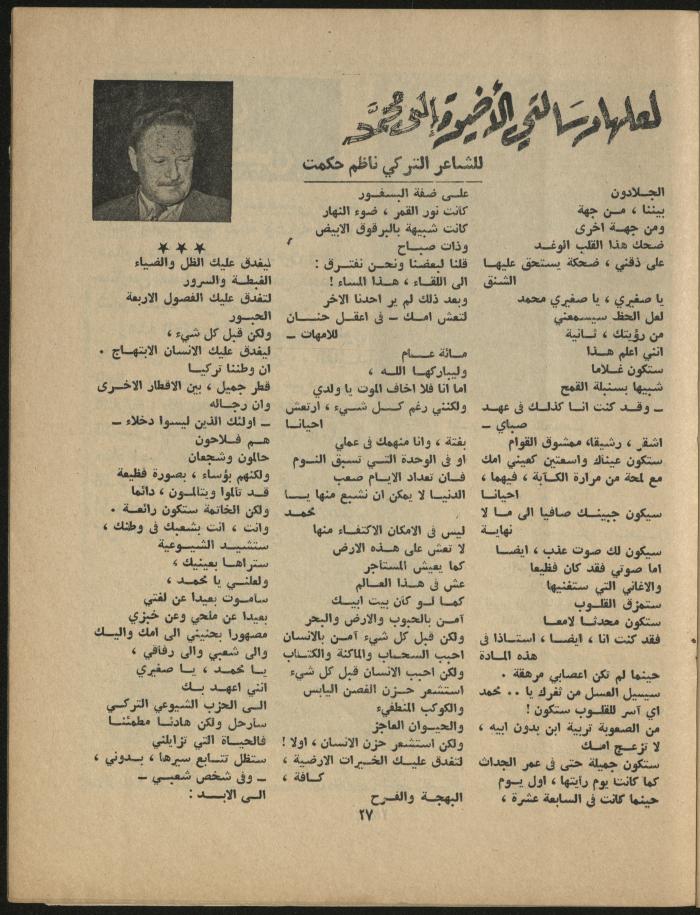 لعلها رسالتي الأخيرة إلى محمَّد
للشاعر التركي ناظم حكمت
الجلادون
بيننا ، من جهة
ومن جهة اخرى
ضحك هذا القلب الوغد
على ذقني ، ضحكة يستحق عليها
الشنق
يا صغيري ، يا صغيري محمد
لعل الحظ سيسمعني
من رؤيتك ، ثانية
انني اعلم هذا
ستكون غلاما
شبيها بسنبلة القمح
ـ وقد كنت انا كذلك في عهد
صباي ـ
اشقر ، رشيقا، ممشوق القوام
ستكون عيناك واسعتين كعيني امك
مع لمحة من مرارة الكآبة ، فيهما ،
احيانا
سيكون جبينك صافيا الى ما لا
نهاية
سيكون لك صوت عذب ، ايضا
اما صوتي فقد كان فظيعا
والاغاني التي ستغنيها
ستمزق القلوب
ستكون محدثا لامعا
فقد كنت انا ، ايضا ، استاذا في
هذه المادة
حينما لم تكن اعصابي مرهقة .
سيسيل العسل من ثغرك يا .. محمد
اي آسر للقلوب ستكون !
من الصعوبة تربية ابن بدون ابيه ،
لا تزعج امك
ستكون جميلة حتى في عمر الجدات
كما كانت يوم رأيتها ، اول يوم
حينما كانت في السابعة عشرة ،
على ضفة البسفور
كانت نور القمر ، ضوء النهار
كانت شبيهة بالبرقوق الابيض
وذات صباح
قلنا لبعضنا ونحن نفترق :
الى اللقاء ، هذا المساء !
وبعد ذلك لم ير احدنا الاخر
لتعش امك ـ في اعقل حنان
للامهات ـ
مائة عام
وليباركها الله ،
اما انا فلا اخاف الموت يا ولدي
ولكنني رغم كل شيء ، ارتعش
احيانا
بغتة ، وانا منهمك في عملي
او في الوحدة التي تسبق النوم
فان تعداد الايام صعب
الدنيا لا يمكن ان نشبع منها يا
محمد
ليس في الامكان الاكتفاء منها
لا تعش على هذه الارض
كما يعيش المستاجر
عش في هذا العالم
كما لو كان بيت ابيك
آمن بالحبوب والارض والبحر
ولكن قبل كل شيء آمن بالانسان
احبب السحاب والماكنة والكتاب
ولكن احبب الانسان قبل كل شيء
استشعر حزن الغصن اليابس
والكوكب المنطفيء
والحيوان العاجز
ولكن استشعر حزن الانسان ، اولا !
لتغدق عليك الخيرات الارضية ،
كافة ،
البهجة والفرح
★ ★ ★
ليغدق عليك الظل والضياء
الغبطة والسرور
لتغدق عليك الفصول الاربعة
الحبور
ولكن قبل كل شيء ،
ليغدق عليك الانسان الابتهاج .
ان وطننا تركيا
قطر جميل ، بين الاقطار الاخرى
وان رجاله
ـ اولئك الذين ليسوا دخلاء ـ
هم فلاحون
حالمون وشجعان
ولكنهم بؤساء ، بصورة فظيعة
قد تألموا ويتألمون ، دائما
ولكن الخاتمة ستكون رائعة .
وانت ، انت بشعبك في وطنك ،
ستشيد الشيوعية
ستراها بعينيك ،
ولعلني يا محمد ،
ساموت بعيدا عن لغتي
بعيدا عن ملحي وعن خبزي
مصهورا بحنيني الى امك واليك
والى شعبي والى رفاقي ،
يا محمد ، يا صغيري
انني اعهد بك
الى الحزب الشيوعي التركي
سارحل ولكن هادئا مطمئنا
فالحياة التي تزايلني
ستظل تتابع سيرها ، بدوني ،
ـ وفي شخص شعبي ـ
الى الابد :
٢٧